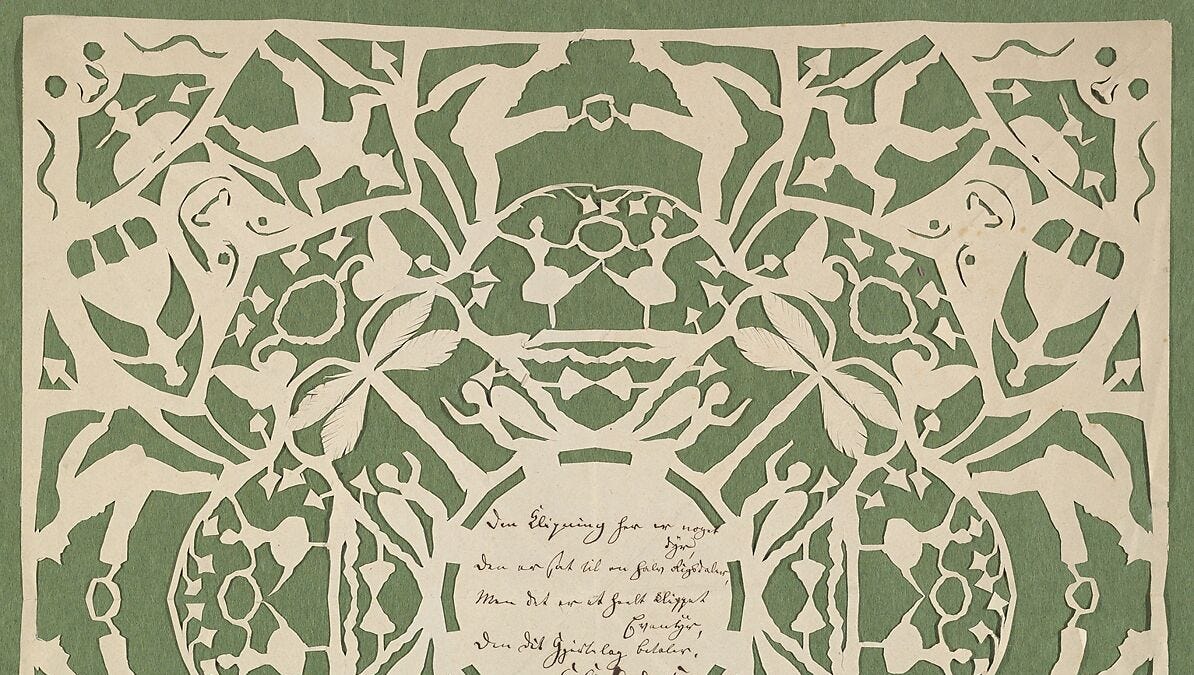 Den Klipning her er noget
dyr,
Den er sat til en halv Rigsdaler
Men det er et heelt Klippet
Eventyr,
dit Hjertelag betaler.